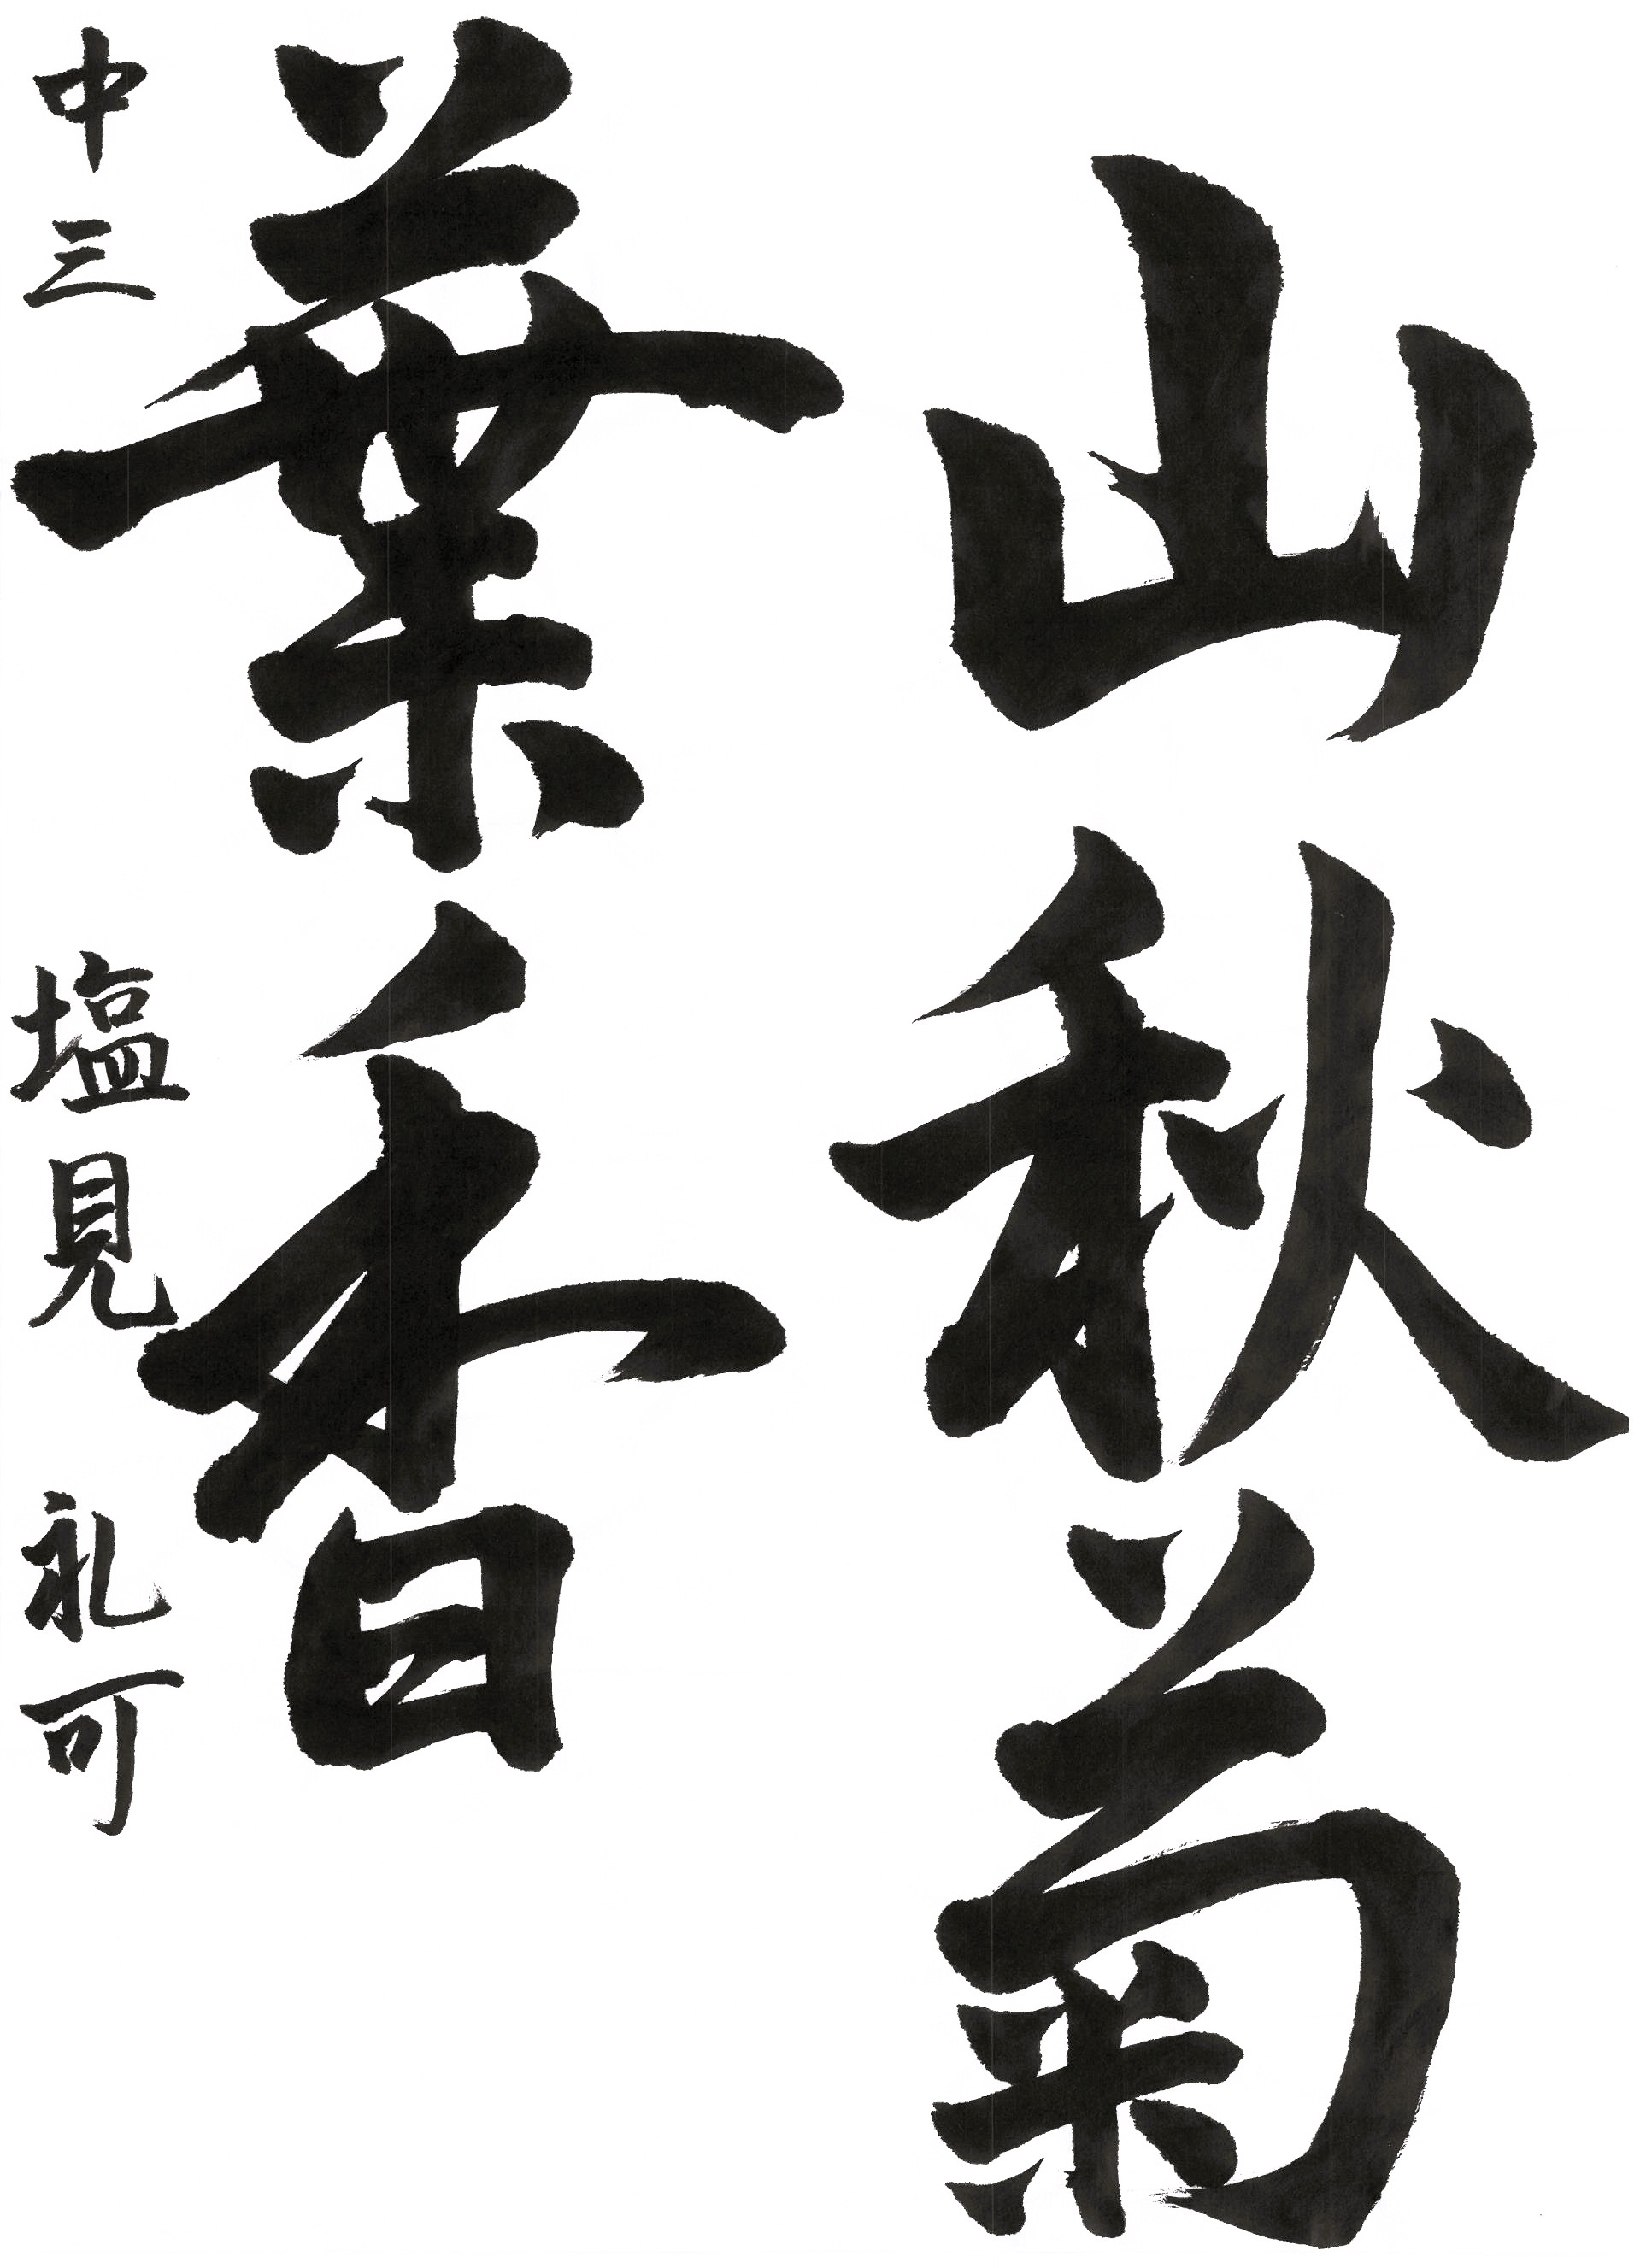 山秋菊
葉香
中三 塩見礼可